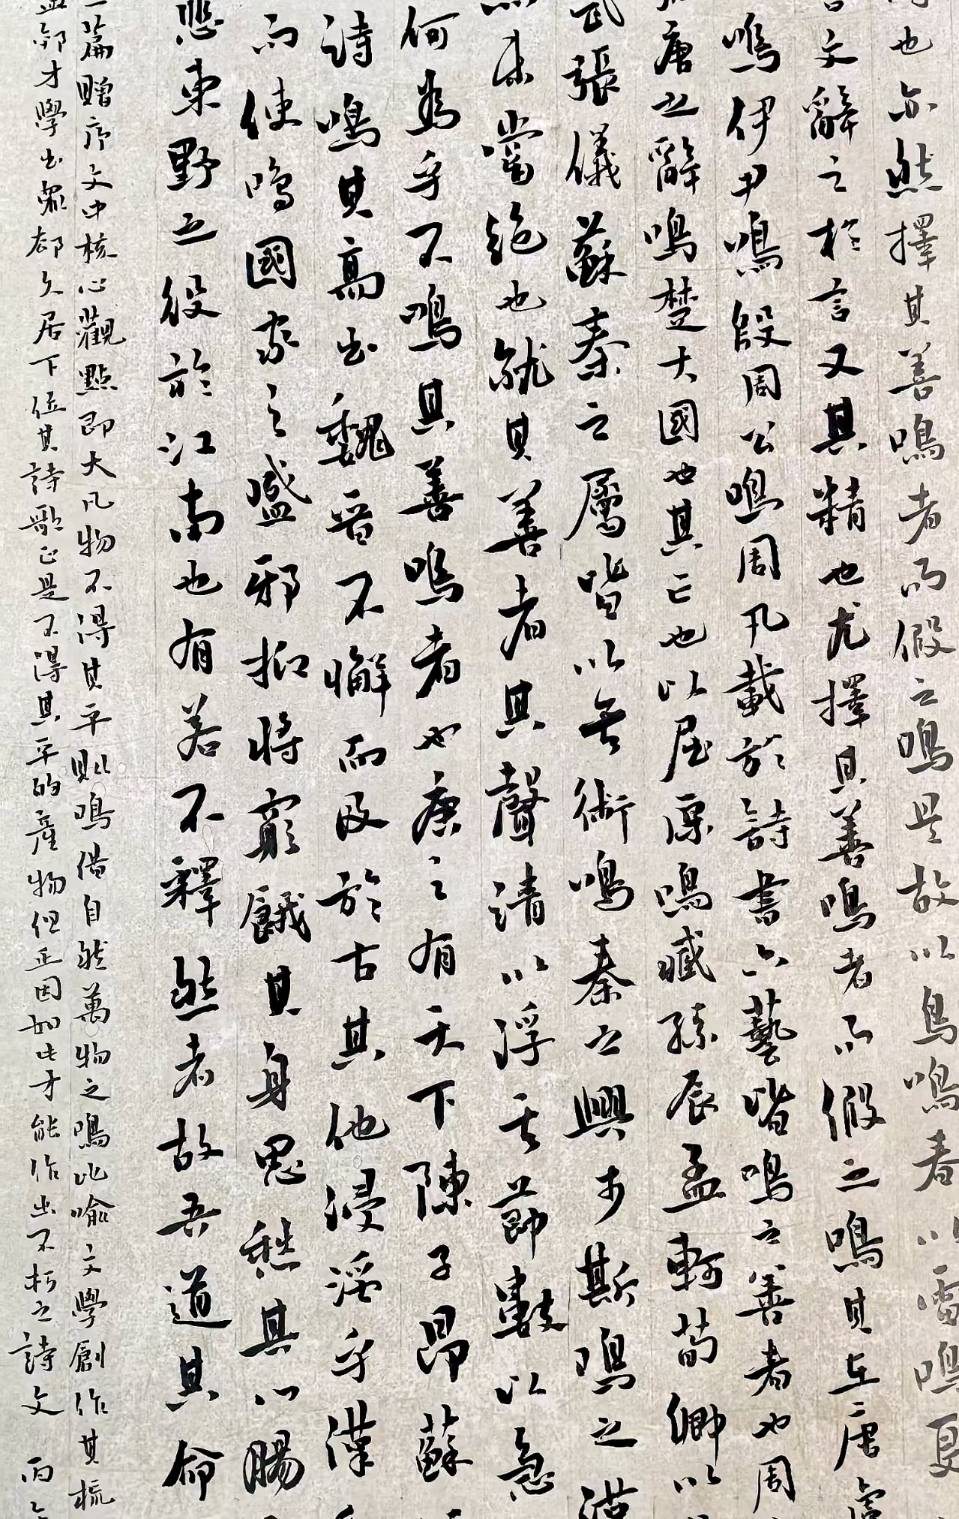 時也亦然擇其善鳴者而假之鳴是故以鳥鳴春以雷鳴夏
文辭之於言又其精也尤擇其善鳴者而假之鳴其在唐虞
鳴伊尹鳴殷周公鳴周凡載於詩書六藝皆鳴之善者也周
唐之辭鳴楚大國也其亡也以屈原鳴臧孫辰孟軻荀卿以
張儀蘇秦之屬皆以其術鳴秦之興李斯鳴之漢
未嘗絕也就其善者其聲清以浮其節數以急
何為乎不鳴其善鳴者也唐之有天下陳子昂蘇
詩鳴其高出魏晉不懈而及於古其他浸淫乎漢
而使鳴國家之盛邪抑將窮餓其身思愁其心腸
悲東野之役於江南也有若不釋然者故吾道其命
一篇贈序文中核心觀點即大凡物不得其平則鳴借自然萬物之鳴比喻文學創作其梳
孟郊才學出眾卻久居下位其詩歌正是不得其平的產物但正因如此才能作出不朽之詩文 丙